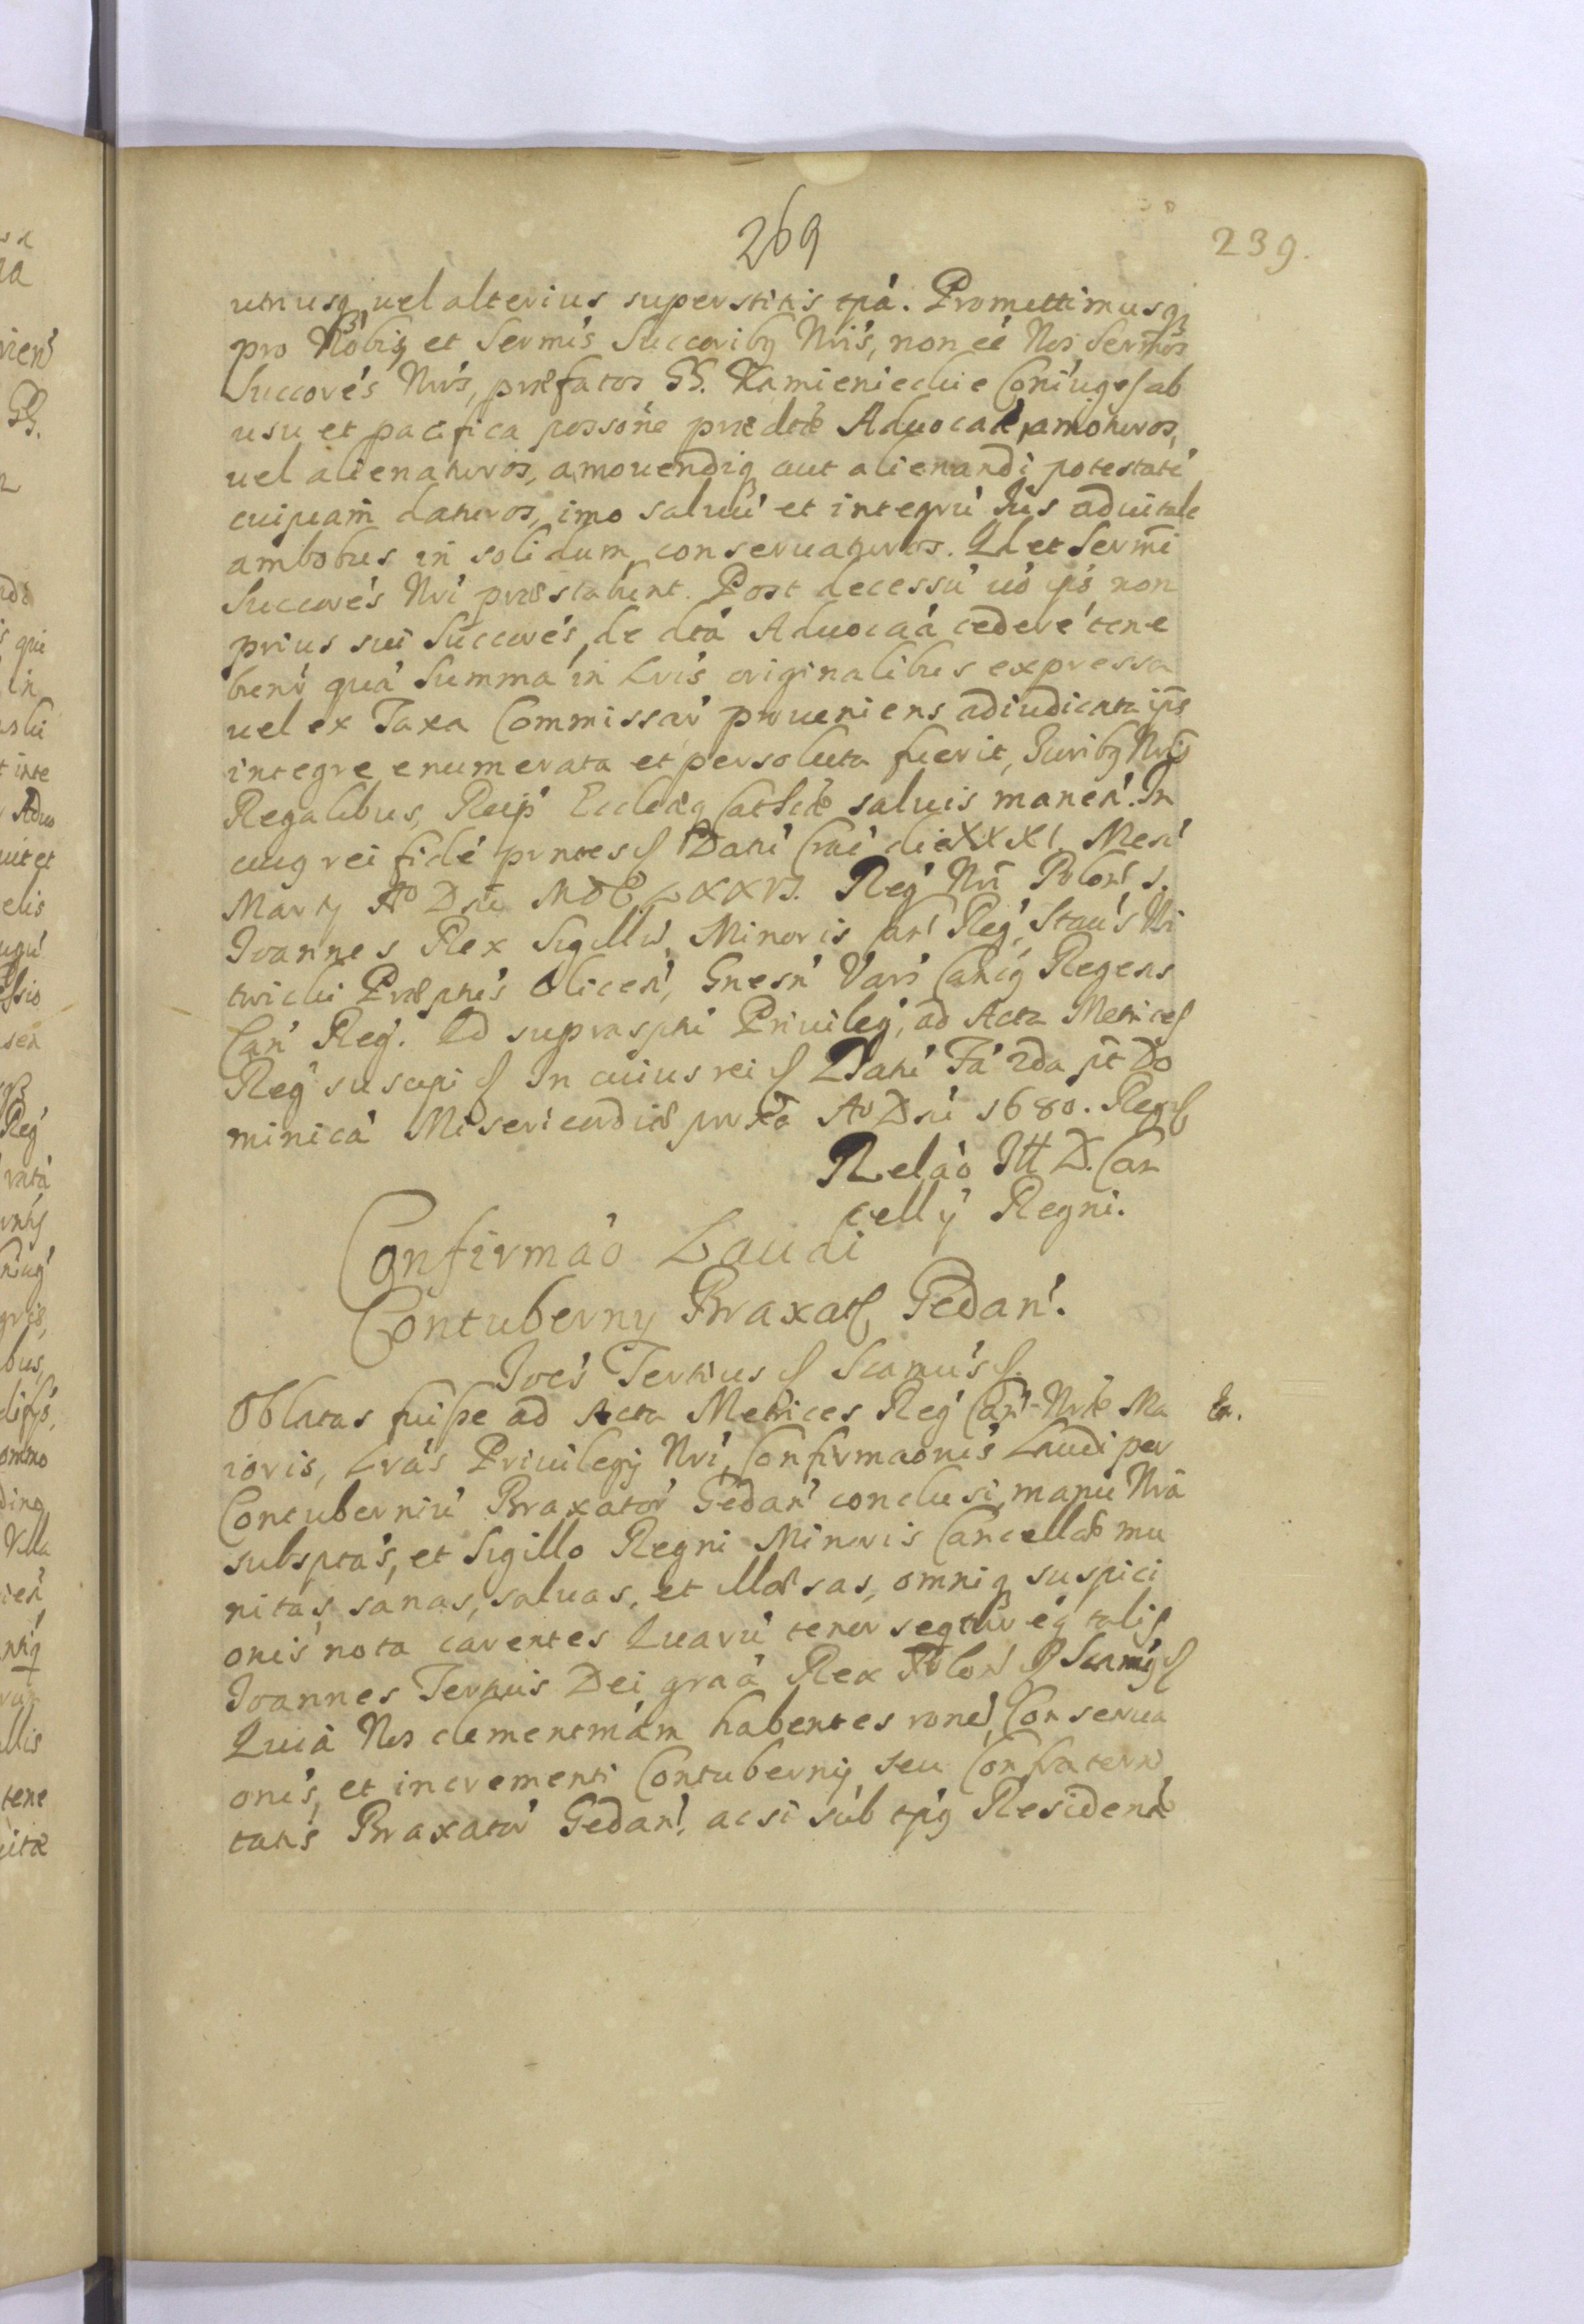 269
239.
utriusq, uel alterius superstitis tpá. Promittimusq
pro Nobis et Sermis Succoribq Nris, non eé Nos Sermos
Succorés Nros, præfatos GG. Kamienieckie Coniuges ab
usu et pacifica possone prædtæ Aduocaæ, amoturos,
uel alienaturos, amouendiq aut alienandi potestaté
cuipiam daturos, imo saluú et integrú Ius aduitale
ambobus in solidum conseruaturos. Qd et Sermi
Succorés Nri præstabunt. Post decessú uó ipó non
prius sui Succorés, de dtá Aduocaá cedere tene
bunt quá Summa in Lris originalibus expressa
uel ex Taxa Commissar proueniens adiudicata ips
integre enumerata et persoluta fuerit, Juribq Nris
Regalibus, Reip Ecclæq Cathcæ saluis manen. In
cuiq rei fidé prntes Dath Crac die XXXI. Mens
Marty Aº Dni MDCLXXVI. Reg Nri Polon 2.
Joannes Rex Sigillú Minoris Can Reg, Staús Wi
twicki Præptús Olicen, Gnesn Vars Canćq Regens
Can Reg. Ad suprasptú Priuileg, ad Acta Metrices
Reg suscepi In cuius rei Dath Fa 2da pt Do
minicá Misericordiæ prxa Aº Dni 1680. Reg
Relaó Ill D. Can
celly Regni.
Confirmaó Laudi
Contuberny Braxat Gedan.
Joes Tertius Scamus
Oblatas fuisse ad Acta Metrices Reg Can Nræ Ma
En.
ioris, Lrás Priuilegy Nri, Confirmaonis Laudi per
Contuberniú Braxator Gedan conclusi, manu Nrá
subsptás, et Sigillo Regni Minoris Cancellæ mu
nitas, sanas, saluas, et illæsas, omniq suspici
onis nota carentes Quarú tenor seqtur éq talis
Joannes Tertius Dei graá Rex Polon Scamus
Quiá Nos clementmám habentes roné Conserua
onis, et incrementi Contuberny seu Confraterni
tatis Braxator Gedan, ac si súb tpq Residentæ